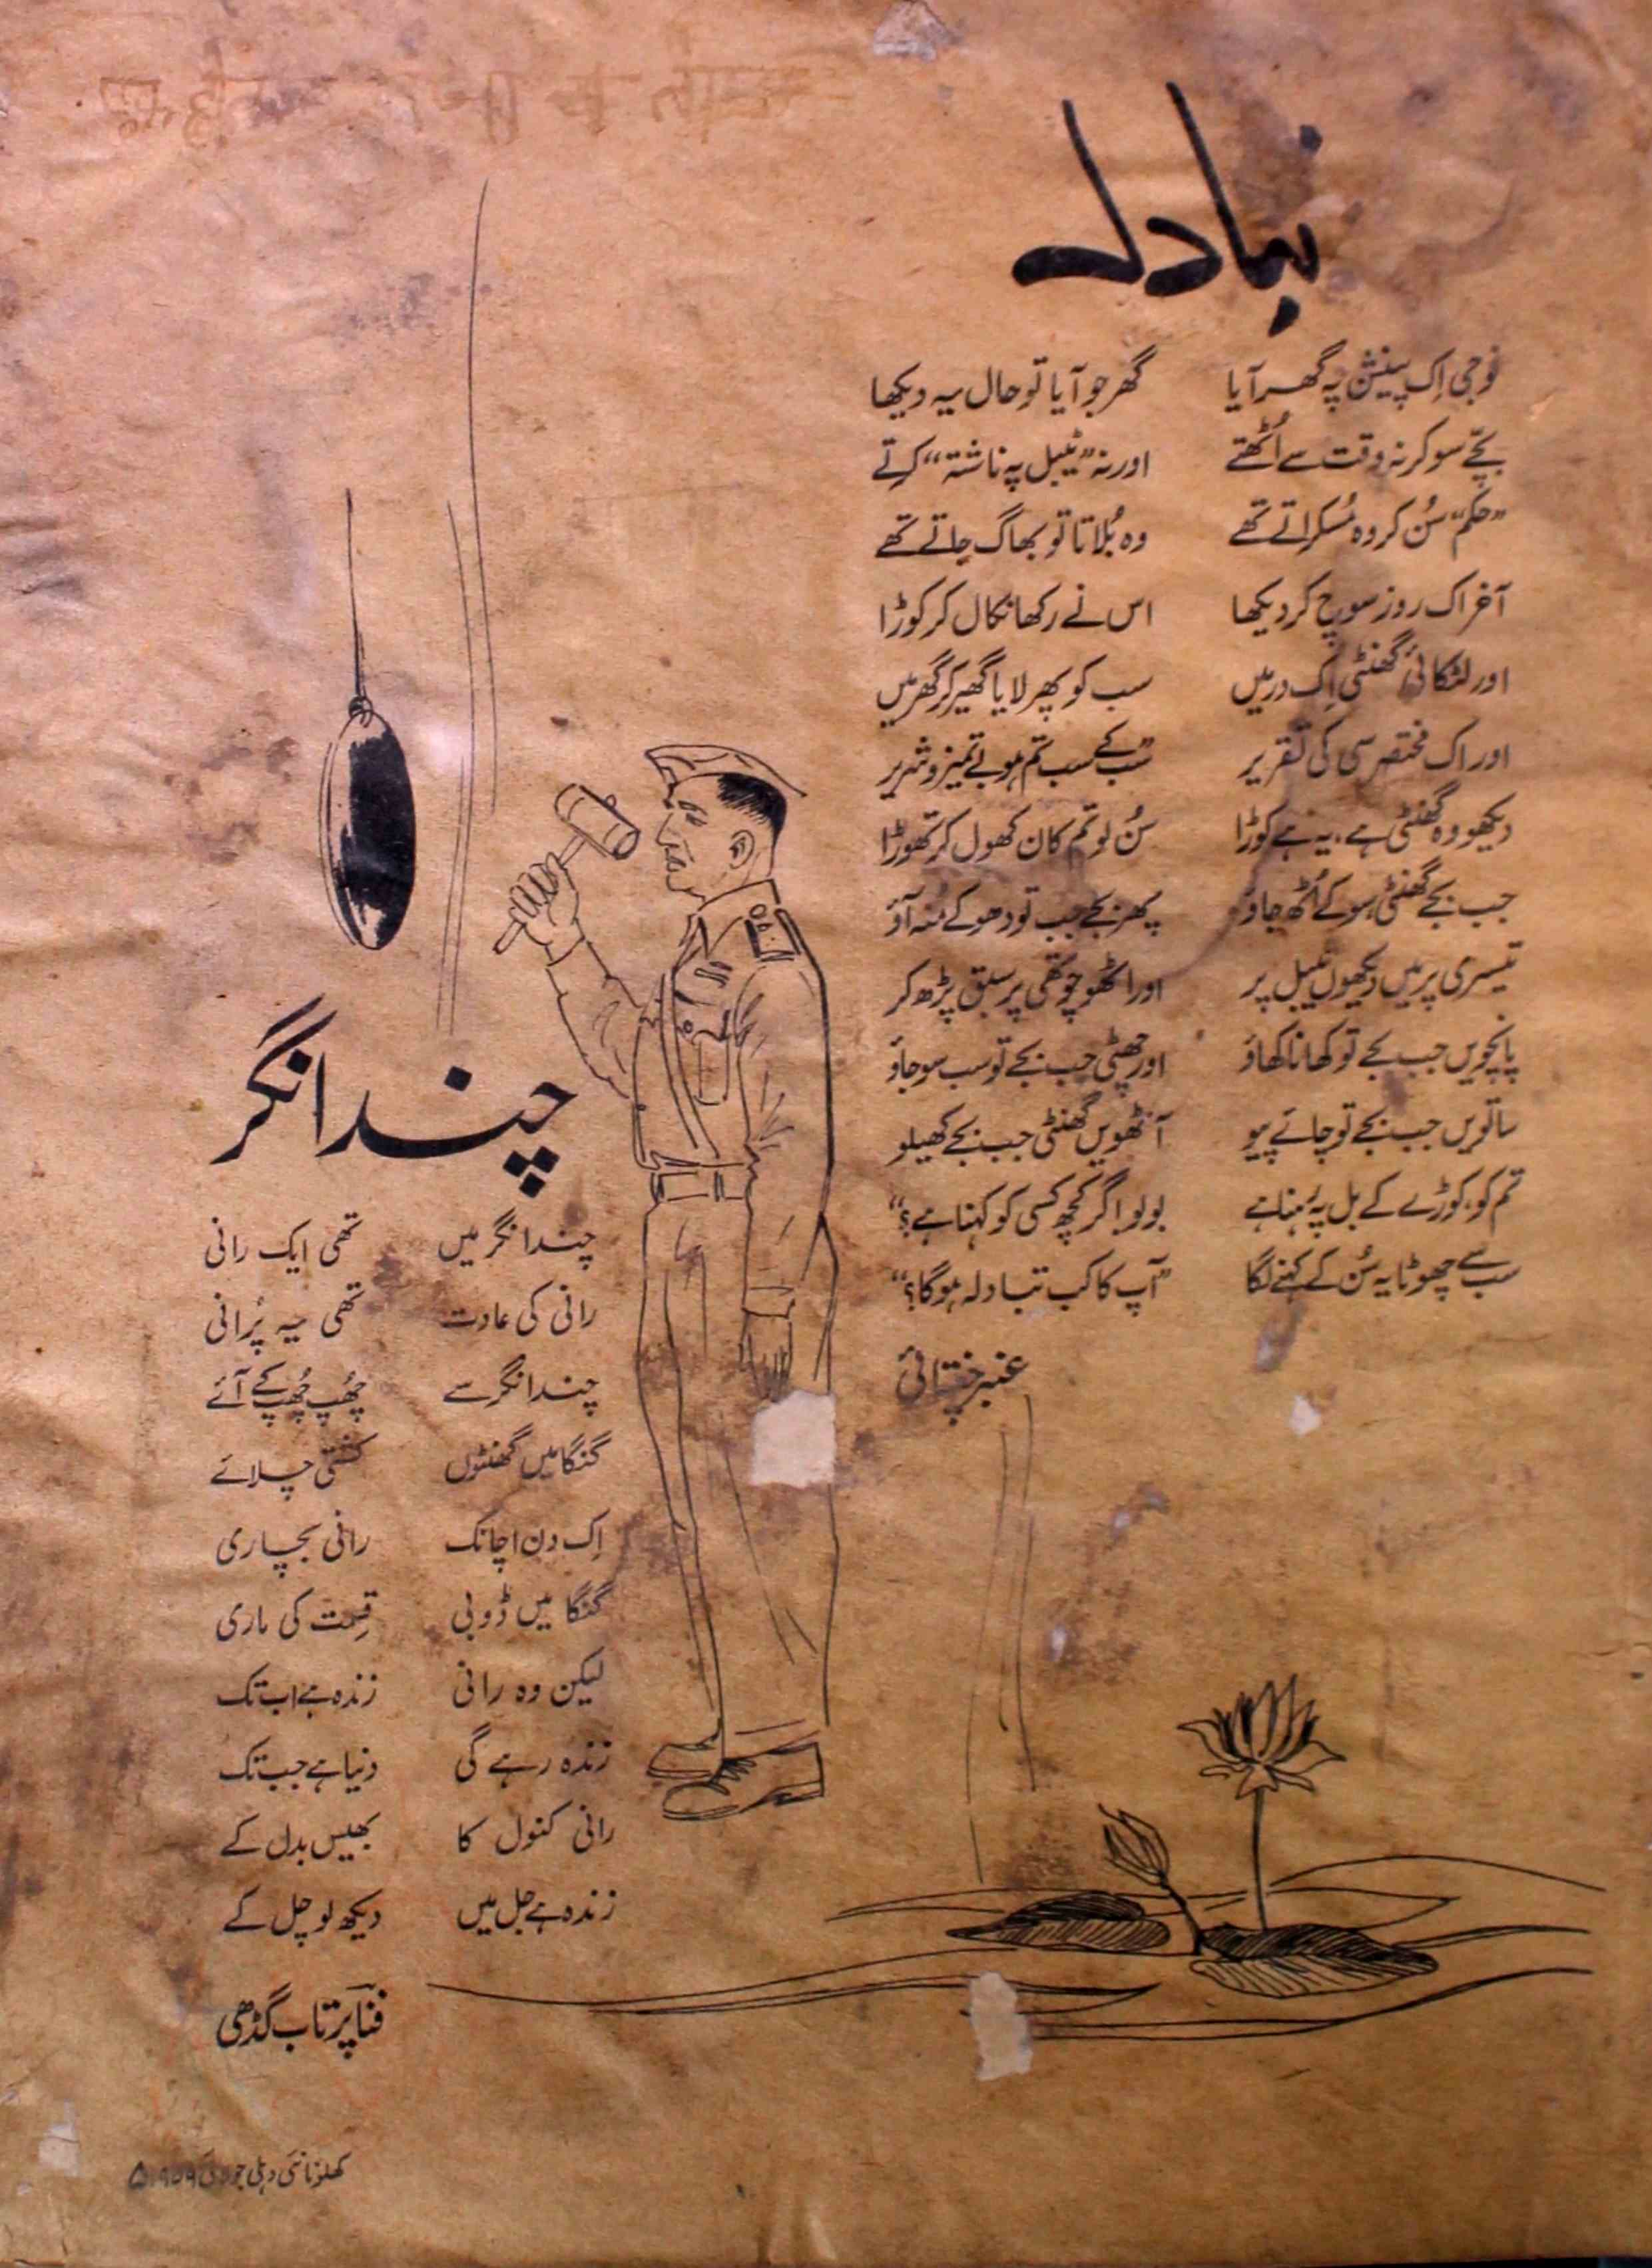 تبادلہ
فوجی اِک پینشن پہ گھر آیا گھر جو آیا تو حال یہ دیکھا
بچّے سو کر نہ وقت سے اُٹھتے اور نہ ”ٹیبل پہ ناشتہ“ کرتے
”حکم“ سُن کر وہ مُسکراتے تھے وہ بُلاتا تو بھاگ جاتے تھے
آخر اک روز سوچ کر دیکھا اس نے رکھا نکال کر کوڑا
اور لٹکائی گھنٹی اِک در میں سب کو پھر لایا گھیر کر گھر میں
اور اک مختصر سی کی تقریر ”سب کے سب تم ہو بے تمیز و شریر
دیکھو وہ گھنٹی ہے، یہ ہے کوڑا سُن لو تم کان کھول کر تھوڑا
جب بجے گھنٹی سو کے اُٹھ جاؤ پھر بجے جب تو دھو کے مُنہ آؤ
تیسری پر میں دیکھوں ٹیبل پر اور اٹھو چوتھی پر سبق پڑھ کر
پانچویں جب بجے تو کھانا کھاؤ اور چھٹی جب بجے تو سب سو جاؤ
ساتویں جب بجے تو چائے پیو آٹھویں گھنٹی جب بجے کھیلو
تم کو، کوڑے کے بل پہ رہنا ہے بولو اگر کچھ کسی کو کہنا ہے؟“
سب سے چھوٹا یہ سُن کے کہنے لگا ”آپ کا کب تبادلہ ہوگا؟“
عنبر چغتائی
چندا نگر
چندا نگر میں تھی ایک رانی
رانی کی عادت تھی یہ پُرانی
چندا نگر سے چھُپ چھُپ کے آئے
گنگا میں گھنٹوں کشتی چلائے
اِک دن اچانک رانی بچاری
گنگا میں ڈوبی قِسمت کی ماری
لیکن وہ رانی زندہ ہے اب تک
زندہ رہے گی دنیا ہے جب تک
رانی کنول کا بھیس بدل کے
زندہ ہے جل میں دیکھ لو چل کے
فنا پرتاب گڈھی
کھلونا نئی دہلی جولائی ۱۹۵۹ ۵